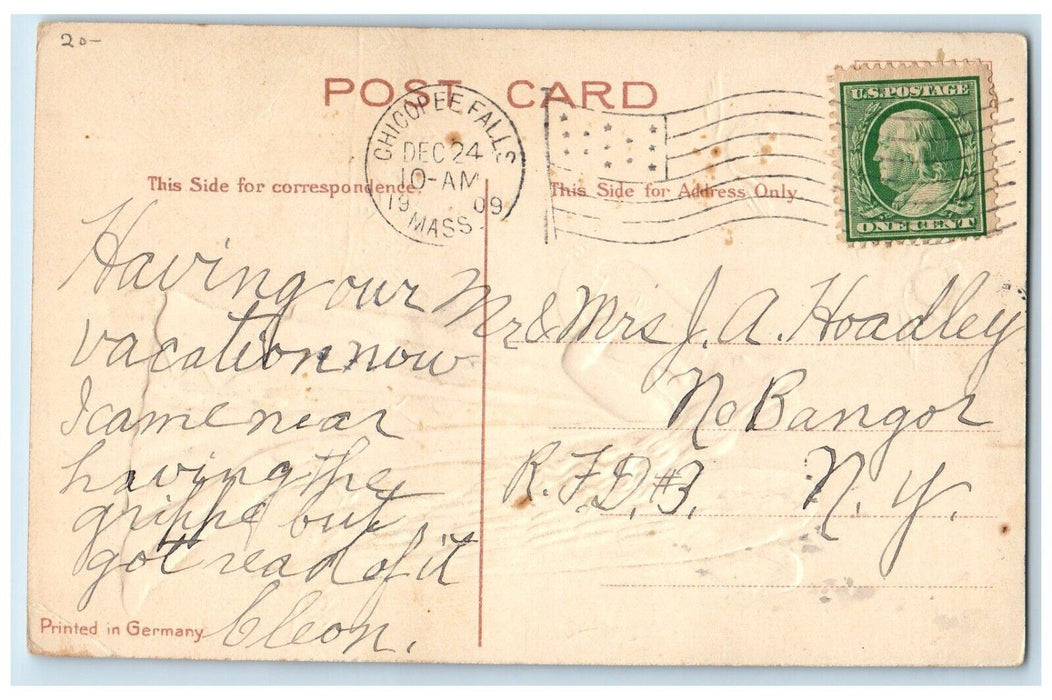 20-
POST CARD
CHICOPEE FALLS
DEC 24
10-AM
19 09
MASS.
U.S. POSTAGE
ONE CENT
This Side for correspondence.
This Side for Address Only
Having our
vacation now
I came near
having the
grippe but
got read of it
Cleon.
Mr & Mrs J. A. Hoadley
No Bangor
R.F.D. #3. N. Y.
Printed in Germany